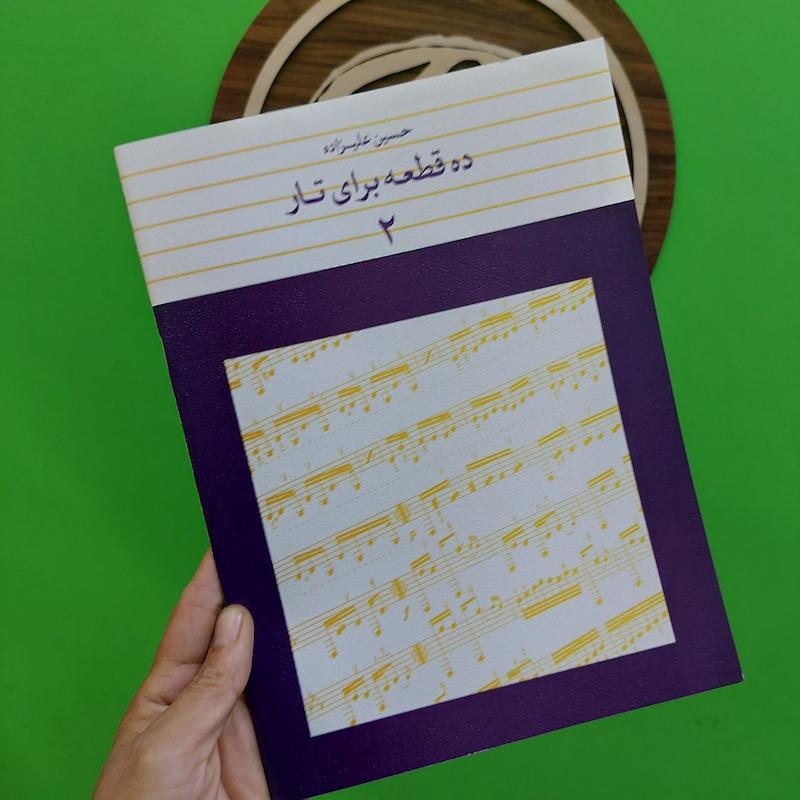 حسین علیزاده
ده قطعه برای تار
۲